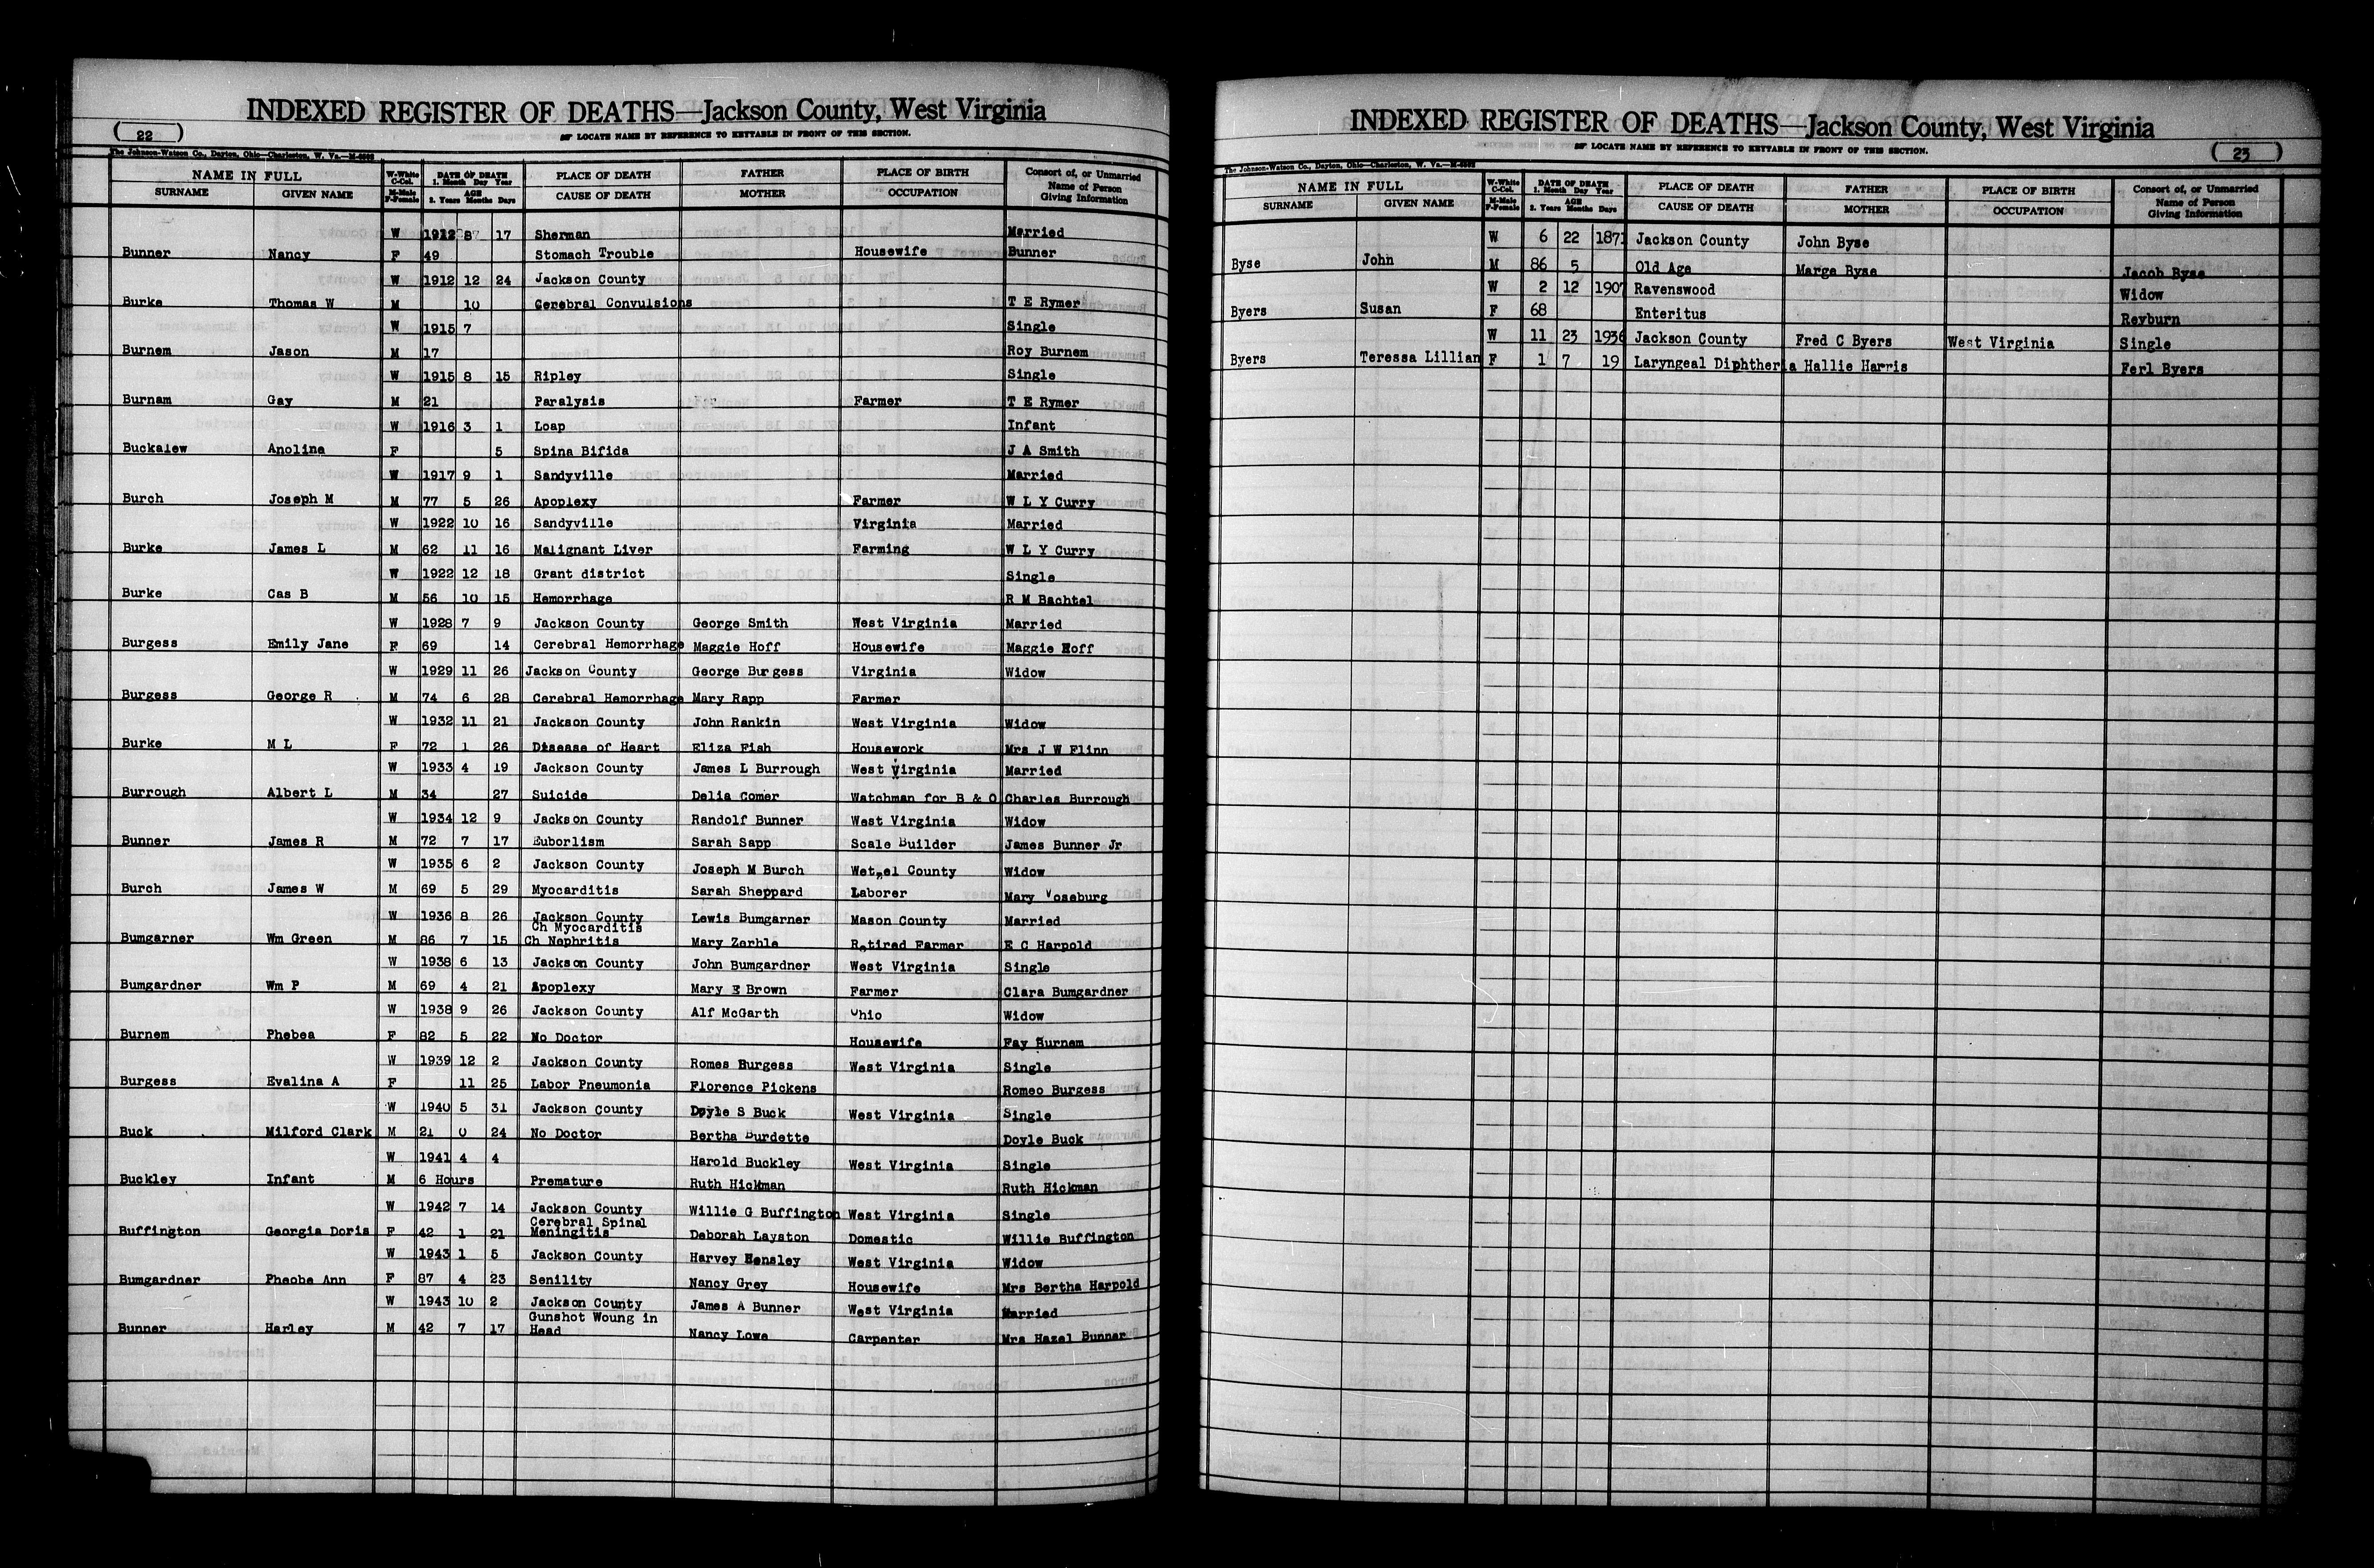 INDEXED REGISTER OF DEATHS—Jackson County, West Virginia
( 22 )
☞ LOCATE NAME BY REFERENCE TO KEYTABLE IN FRONT OF THIS SECTION.
The Johnson-Watson Co., Dayton, Ohio—Charleston, W. Va.
NAME IN FULL W-White C-Col. DATE OF DEATH 1. Month Day Year PLACE OF DEATH FATHER PLACE OF BIRTH Consort of, or Unmarried
SURNAME GIVEN NAME M-Male F-Female AGE 2. Years Months Days CAUSE OF DEATH MOTHER OCCUPATION Name of Person Giving Information
W 1912 8 17 Sherman Married
Bunner Nancy F 49 Stomach Trouble Housewife Bunner
W 1912 12 24 Jackson County
Burke Thomas W M 10 Cerebral Convulsions T E Rymer
W 1915 7 Single
Burnem Jason M 17 Roy Burnem
W 1915 8 15 Ripley Single
Burnam Gay M 21 Paralysis Farmer T E Rymer
W 1916 3 1 Loap Infant
Buckalew Anoline F 5 Spina Bifida J A Smith
W 1917 9 1 Sandyville Married
Burch Joseph M M 77 5 26 Apoplexy Farmer W L Y Curry
W 1922 10 16 Sandyville Virginia Married
Burke James L M 62 11 16 Malignant Liver Farming W L Y Curry
W 1922 12 18 Grant district Single
Burke Cas B M 56 10 15 Hemorrhage R M Bachtel
W 1928 7 9 Jackson County George Smith West Virginia Married
Burgess Emily Jane F 69 14 Cerebral Hemorrhage Maggie Hoff Housewife Maggie Hoff
W 1929 11 26 Jackson County George Burgess Virginia Widow
Burgess George R M 74 6 28 Cerebral Hemorrhage Mary Rapp Farmer
W 1932 11 21 Jackson County John Rankin West Virginia Widow
Burke M L F 72 1 26 Disease of Heart Eliza Fish Housework Mrs J W Flinn
W 1933 4 19 Jackson County James L Burrough West Virginia Married
Burrough Albert L M 34 27 Suicide Delia Comer Watchman for B & O Charles Burrough
W 1934 12 9 Jackson County Randolf Bunner West Virginia Widow
Bunner James R M 72 7 17 Euborlism Sarah Sapp Scale Builder James Bunner Jr
W 1935 6 2 Jackson County Joseph M Burch Wetzel County Widow
Burch James W M 69 5 29 Myocarditis Sarah Sheppard Laborer Mary Voseburg
W 1936 8 26 Jackson County Lewis Bumgarner Mason County Married
Ch Myocarditis
Bumgarner Wm Green M 86 7 15 Ch Nephritis Mary Zerhle Retired Farmer E C Harpold
W 1938 6 13 Jackson County John Bumgardner West Virginia Single
Bumgardner Wm P M 69 4 21 Apoplexy Mary E Brown Farmer Clara Bumgardner
W 1938 9 26 Jackson County Alf McGarth Ohio Widow
Burnem Phebea F 82 5 22 No Doctor Housewife Fay Burnem
W 1939 12 2 Jackson County Romes Burgess West Virginia Single
Burgess Evalina A F 11 25 Labor Pneumonia Florence Pickens Romeo Burgess
W 1940 5 31 Jackson County Doyle S Buck West Virginia Single
Buck Milford Clark M 21 0 24 No Doctor Bertha Burdette Doyle Buck
W 1941 4 4 Harold Buckley West Virginia Single
Buckley Infant M 6 Hours Premature Ruth Hickman Ruth Hickman
W 1942 7 14 Jackson County Willie G Buffington West Virginia Single
Cerebral Spinal
Buffington Georgia Doris F 42 1 21 Meningitis Deborah Layston Domestic Willie Buffington
W 1943 1 5 Jackson County Harvey Hensley West Virginia Widow
Bumgardner Pheobe Ann F 87 4 23 Senility Nancy Grey Housewife Mrs Bertha Harpold
W 1943 10 2 Jackson County James A Bunner West Virginia Married
Gunshot Woung in
Bunner Harley M 42 7 17 Head Nancy Lowe Carpenter Mrs Hazel Bunner
INDEXED REGISTER OF DEATHS—Jackson County, West Virginia
☞ LOCATE NAME BY REFERENCE TO KEYTABLE IN FRONT OF THIS SECTION.
( 23 )
The Johnson-Watson Co., Dayton, Ohio—Charleston, W. Va.
NAME IN FULL W-White C-Col. DATE OF DEATH 1. Month Day Year PLACE OF DEATH FATHER PLACE OF BIRTH Consort of, or Unmarried
SURNAME GIVEN NAME M-Male F-Female AGE 2. Years Months Days CAUSE OF DEATH MOTHER OCCUPATION Name of Person Giving Information
W 6 22 1871 Jackson County John Byse
Byse John M 86 5 Old Age Marge Byse Jacob Byse
W 2 12 1907 Ravenswood Widow
Byers Susan F 68 Enteritus Reyburn
W 11 23 1936 Jackson County Fred C Byers West Virginia Single
Byers Teressa Lillian F 1 7 19 Laryngeal Diphtheria Hallie Harris Ferl Byers